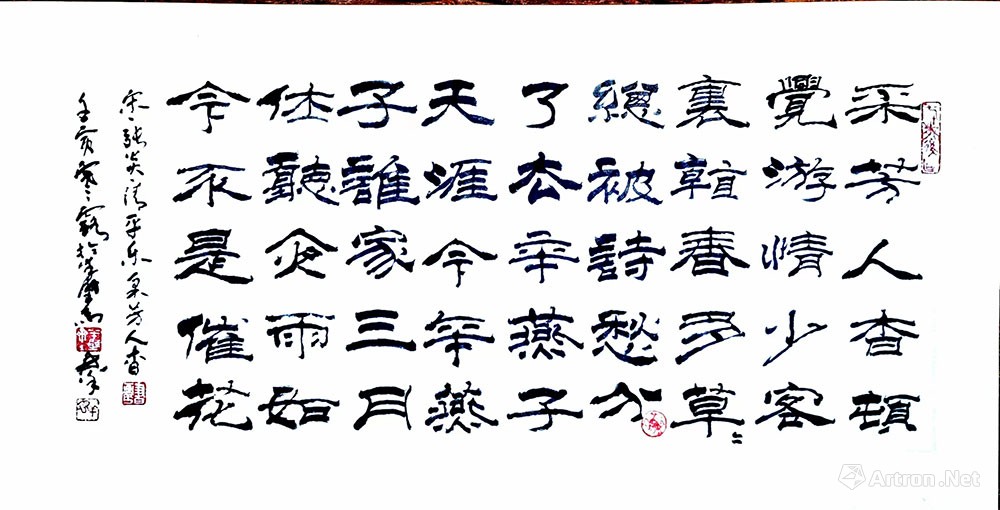 采芳人杳頓
覺游情少客
裏看春多草〻
總被詩愁分
了去年燕子
天涯今年燕
子誰家三月
休聽夜雨如
今不是催花
宋張炎清平乐采芳人杳
寒露於
Artron.Net